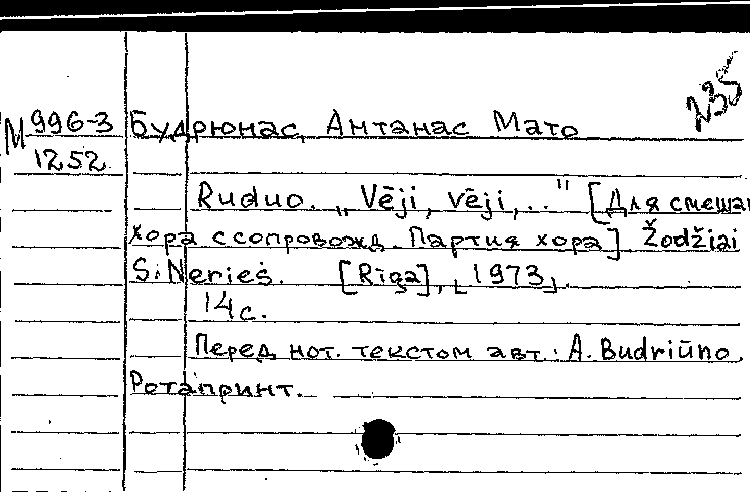 235
М 996-3
1252
Будрюнас, Антанас Мато
Ruduo. „Vēji, vēji,.." [Для смешан
хора с сопровожд. Партия хора] Žodžiai
S. Nėries. [Rīga], [1973].
14 с.
Перед нот. текстом авт.: A. Budriūno.
Ротапринт.